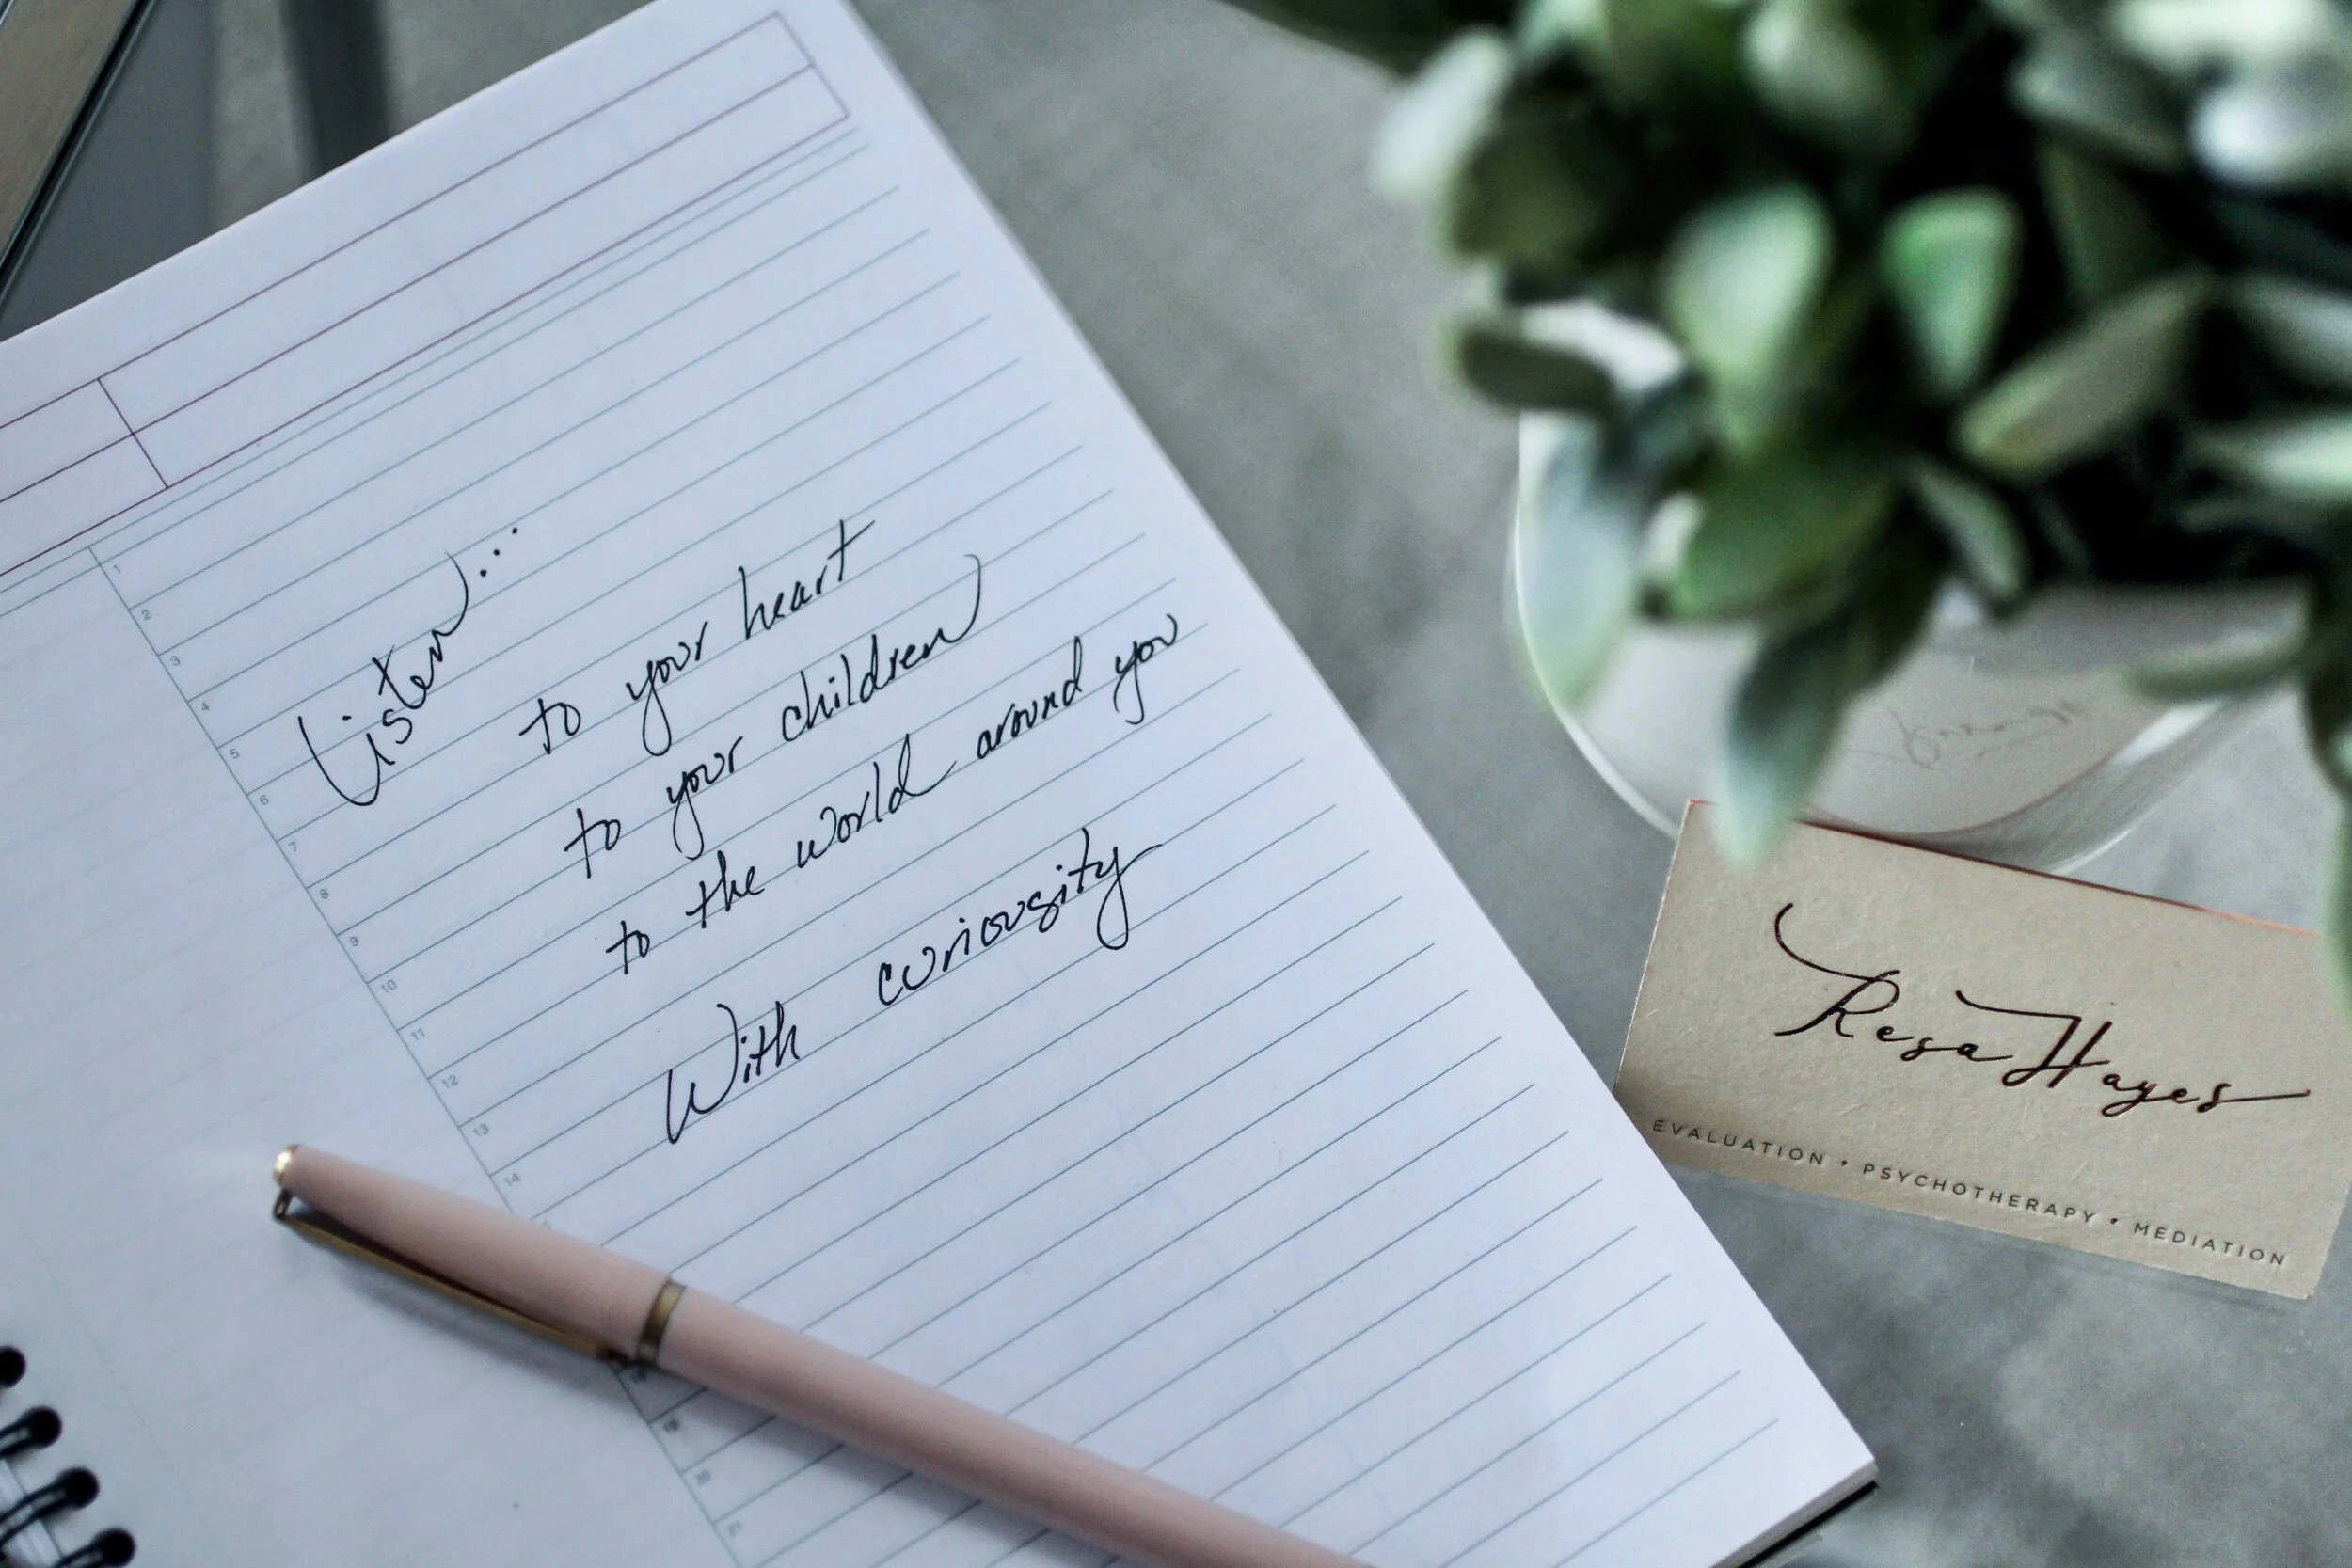 Listen...
to your heart
to your children
to the world around you
With curiousity
1
2
3
4
5
6
7
8
9
10
11
12
13
14
19
20
21
Resa Hayes
EVALUATION • PSYCHOTHERAPY • MEDIATION